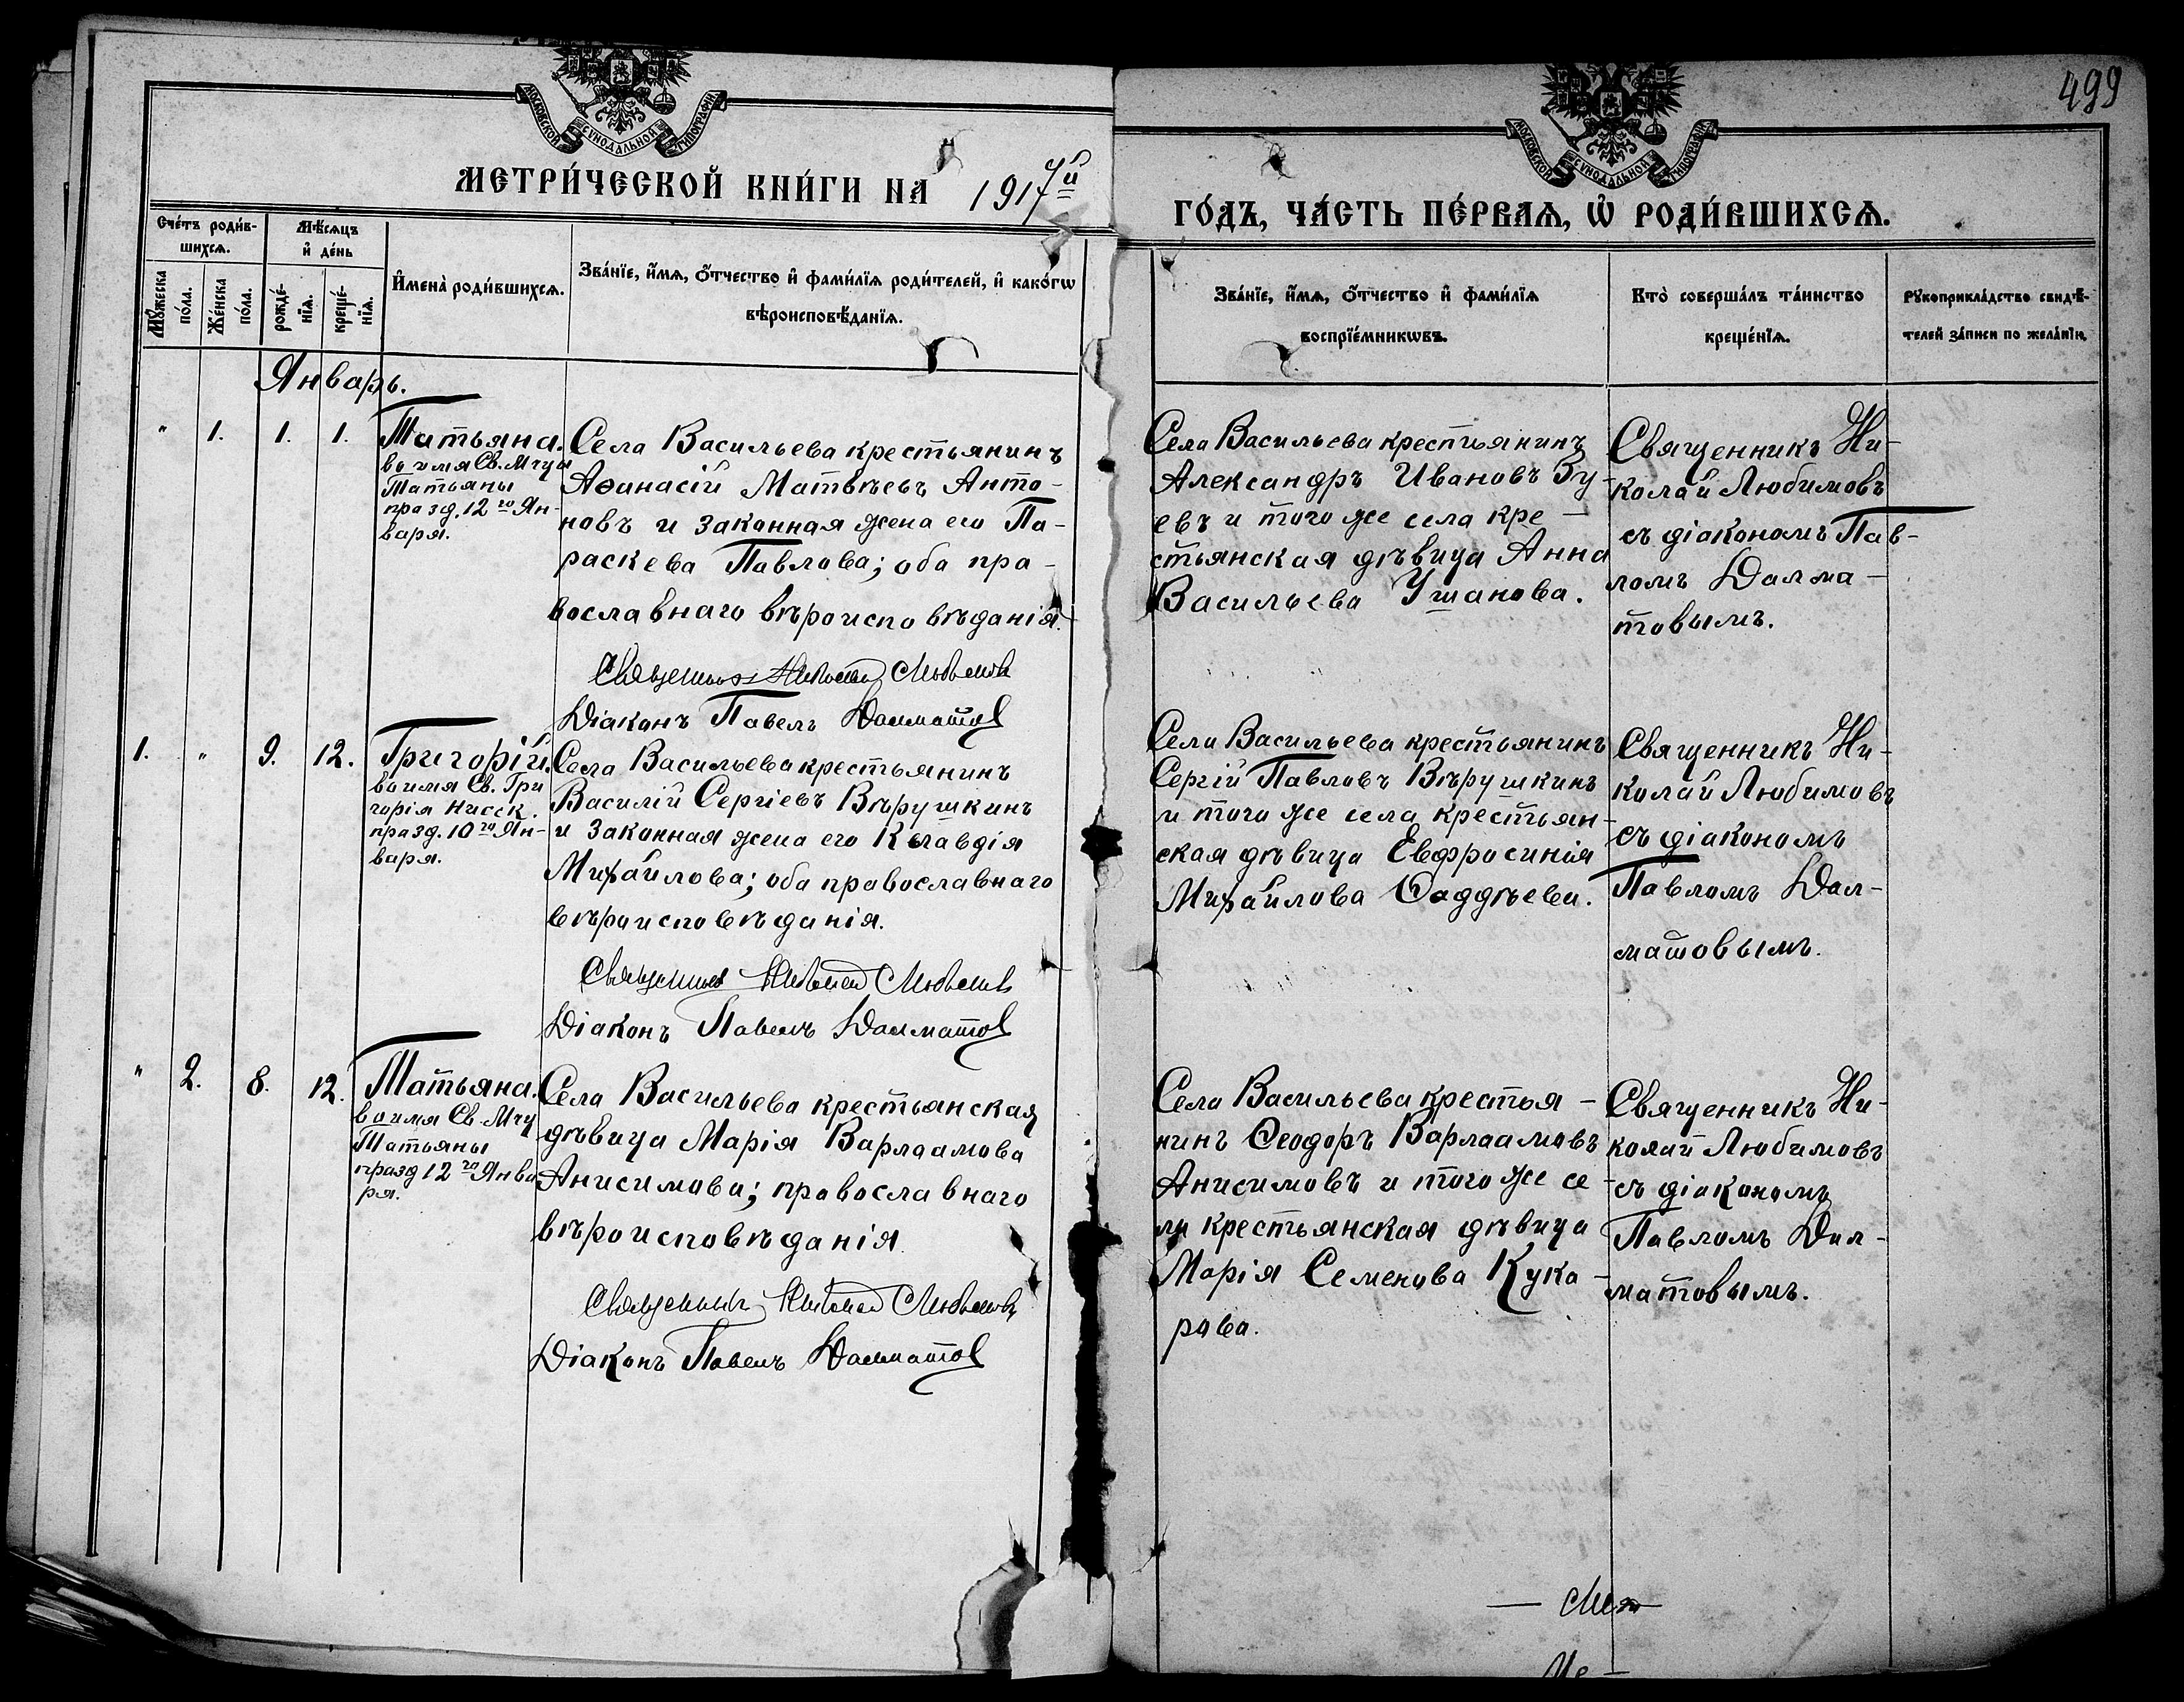 499
МОСКОВСКОЙ СѴНОДАЛЬНОЙ ТИПОГРАФІИ
МОСКОВСКОЙ СѴНОДАЛЬНОЙ ТИПОГРАФІИ
МЕТРИ́ЧЕСКОЙ КНИ́ГИ НА 1917й
ГО́ДЪ, ЧА́СТЬ ПЕ́РВАѦ, Ѡ҆ РОДИ́ВШИХСѦ.
Сче́тъ роди́в-
шихсѧ.
Мѣ́сѧцъ
и҆ де́нь
Мꙋ́жеска
по́ла.
Же́нска
по́ла.
рожде́-
нїѧ.
креще́-
нїѧ.
И҆мена̀ роди́вшихсѧ.
Зва́нїе, и҆́мѧ, ѻ҆́тчество и҆ фами́лїѧ роди́телей, и҆ како́гѡ
вѣроисповѣ́данїѧ.
Зва́нїе, и҆́мѧ, ѻ҆́тчество и҆ фами́лїѧ
воспрїе́мникѡвъ.
Кто̀ соверша́лъ та́инство
креще́нїѧ.
Рꙋкоприкла́дство свидѣ́-
телей за́писи по жела́нїю.
Январь.
" 1. 1. 1.
Татьяна.
во имя Св. Мчцы
Татьяны
празд. 12го Ян-
варя.
Села Васильева крестьянинъ
Аѳанасій Матвѣевъ Анто-
новъ и законная жена его Па-
раскева Павлова; оба пра-
вославнаго вѣроисповѣданія.
Священникъ Николай Любимовъ
Діаконъ Павелъ Далматов
Села Васильева крестьянинъ
Александръ Ивановъ Зу-
евъ и того же села кре-
стьянская дѣвица Анна
Васильева Ушакова.
Священникъ Ни-
колай Любимовъ
съ діакономъ Пав-
ломъ Далма-
товымъ.
1. " 9. 12.
Григорій.
во имя Св. Гри
горія Нисск.
празд. 10го Ян-
варя.
Села Васильева крестьянинъ
Василій Сергіевъ Вѣрушкинъ
и законная жена его Клавдія
Михайлова; оба православнаго
вѣроисповѣданія.
Священникъ Николай Любимовъ
Діаконъ Павелъ Далматов
Села Васильева крестьянинъ
Сергій Павловъ Вѣрушкинъ
и того же села крестьян-
ская дѣвица Евфросинія
Михайлова Ѳаддѣева.
Священникъ Ни-
колай Любимовъ
съ діакономъ
Павломъ Дал-
матовымъ.
" 2. 8. 12.
Татьяна.
во имя Св. Мчц
Татьяны
празд 12го Янва
ря.
Села Васильева крестьянская
дѣвица Марія Варлаамова
Анисимова; православнаго
вѣроисповѣданія.
Священникъ Николай Любимовъ
Діаконъ Павелъ Далматов
Села Васильева крестья-
нинъ Ѳеодоръ Варлаамовъ
Анисимовъ и того же се-
ла крестьянская дѣвица
Марія Семенова Кука-
рова.
Священникъ Ни-
колай Любимовъ
съ діакономъ
Павломъ Дал-
матовымъ.